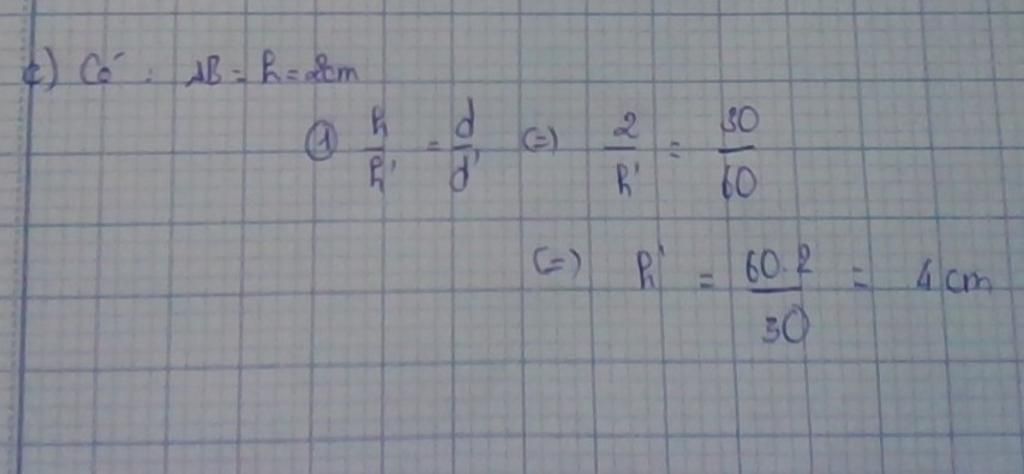 c) Có : AB = h = 2cm
① h/h' = d/d' (=) 2/h' = 30/60
(=) h' = 60.2/30 = 4cm